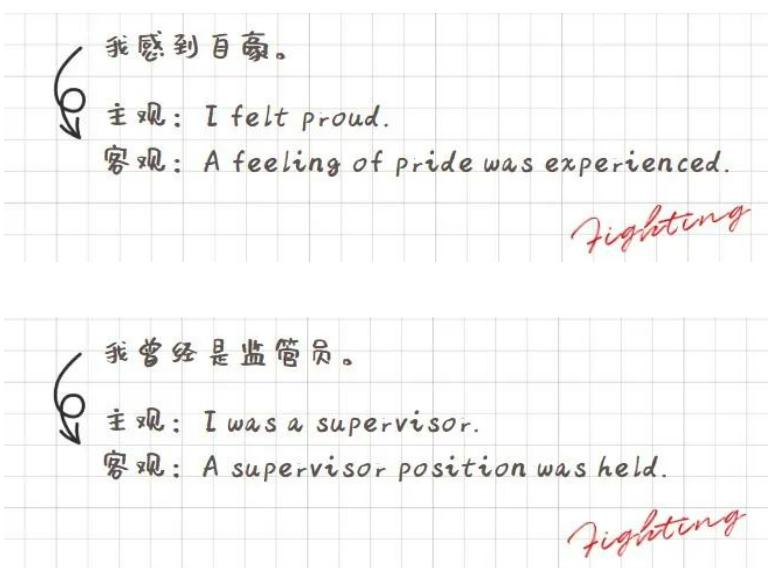 我感到自豪。
主观：I felt proud.
客观：A feeling of pride was experienced.
Fighting
我曾经是监管员。
主观：I was a supervisor.
客观：A supervisor position was held.
Fighting